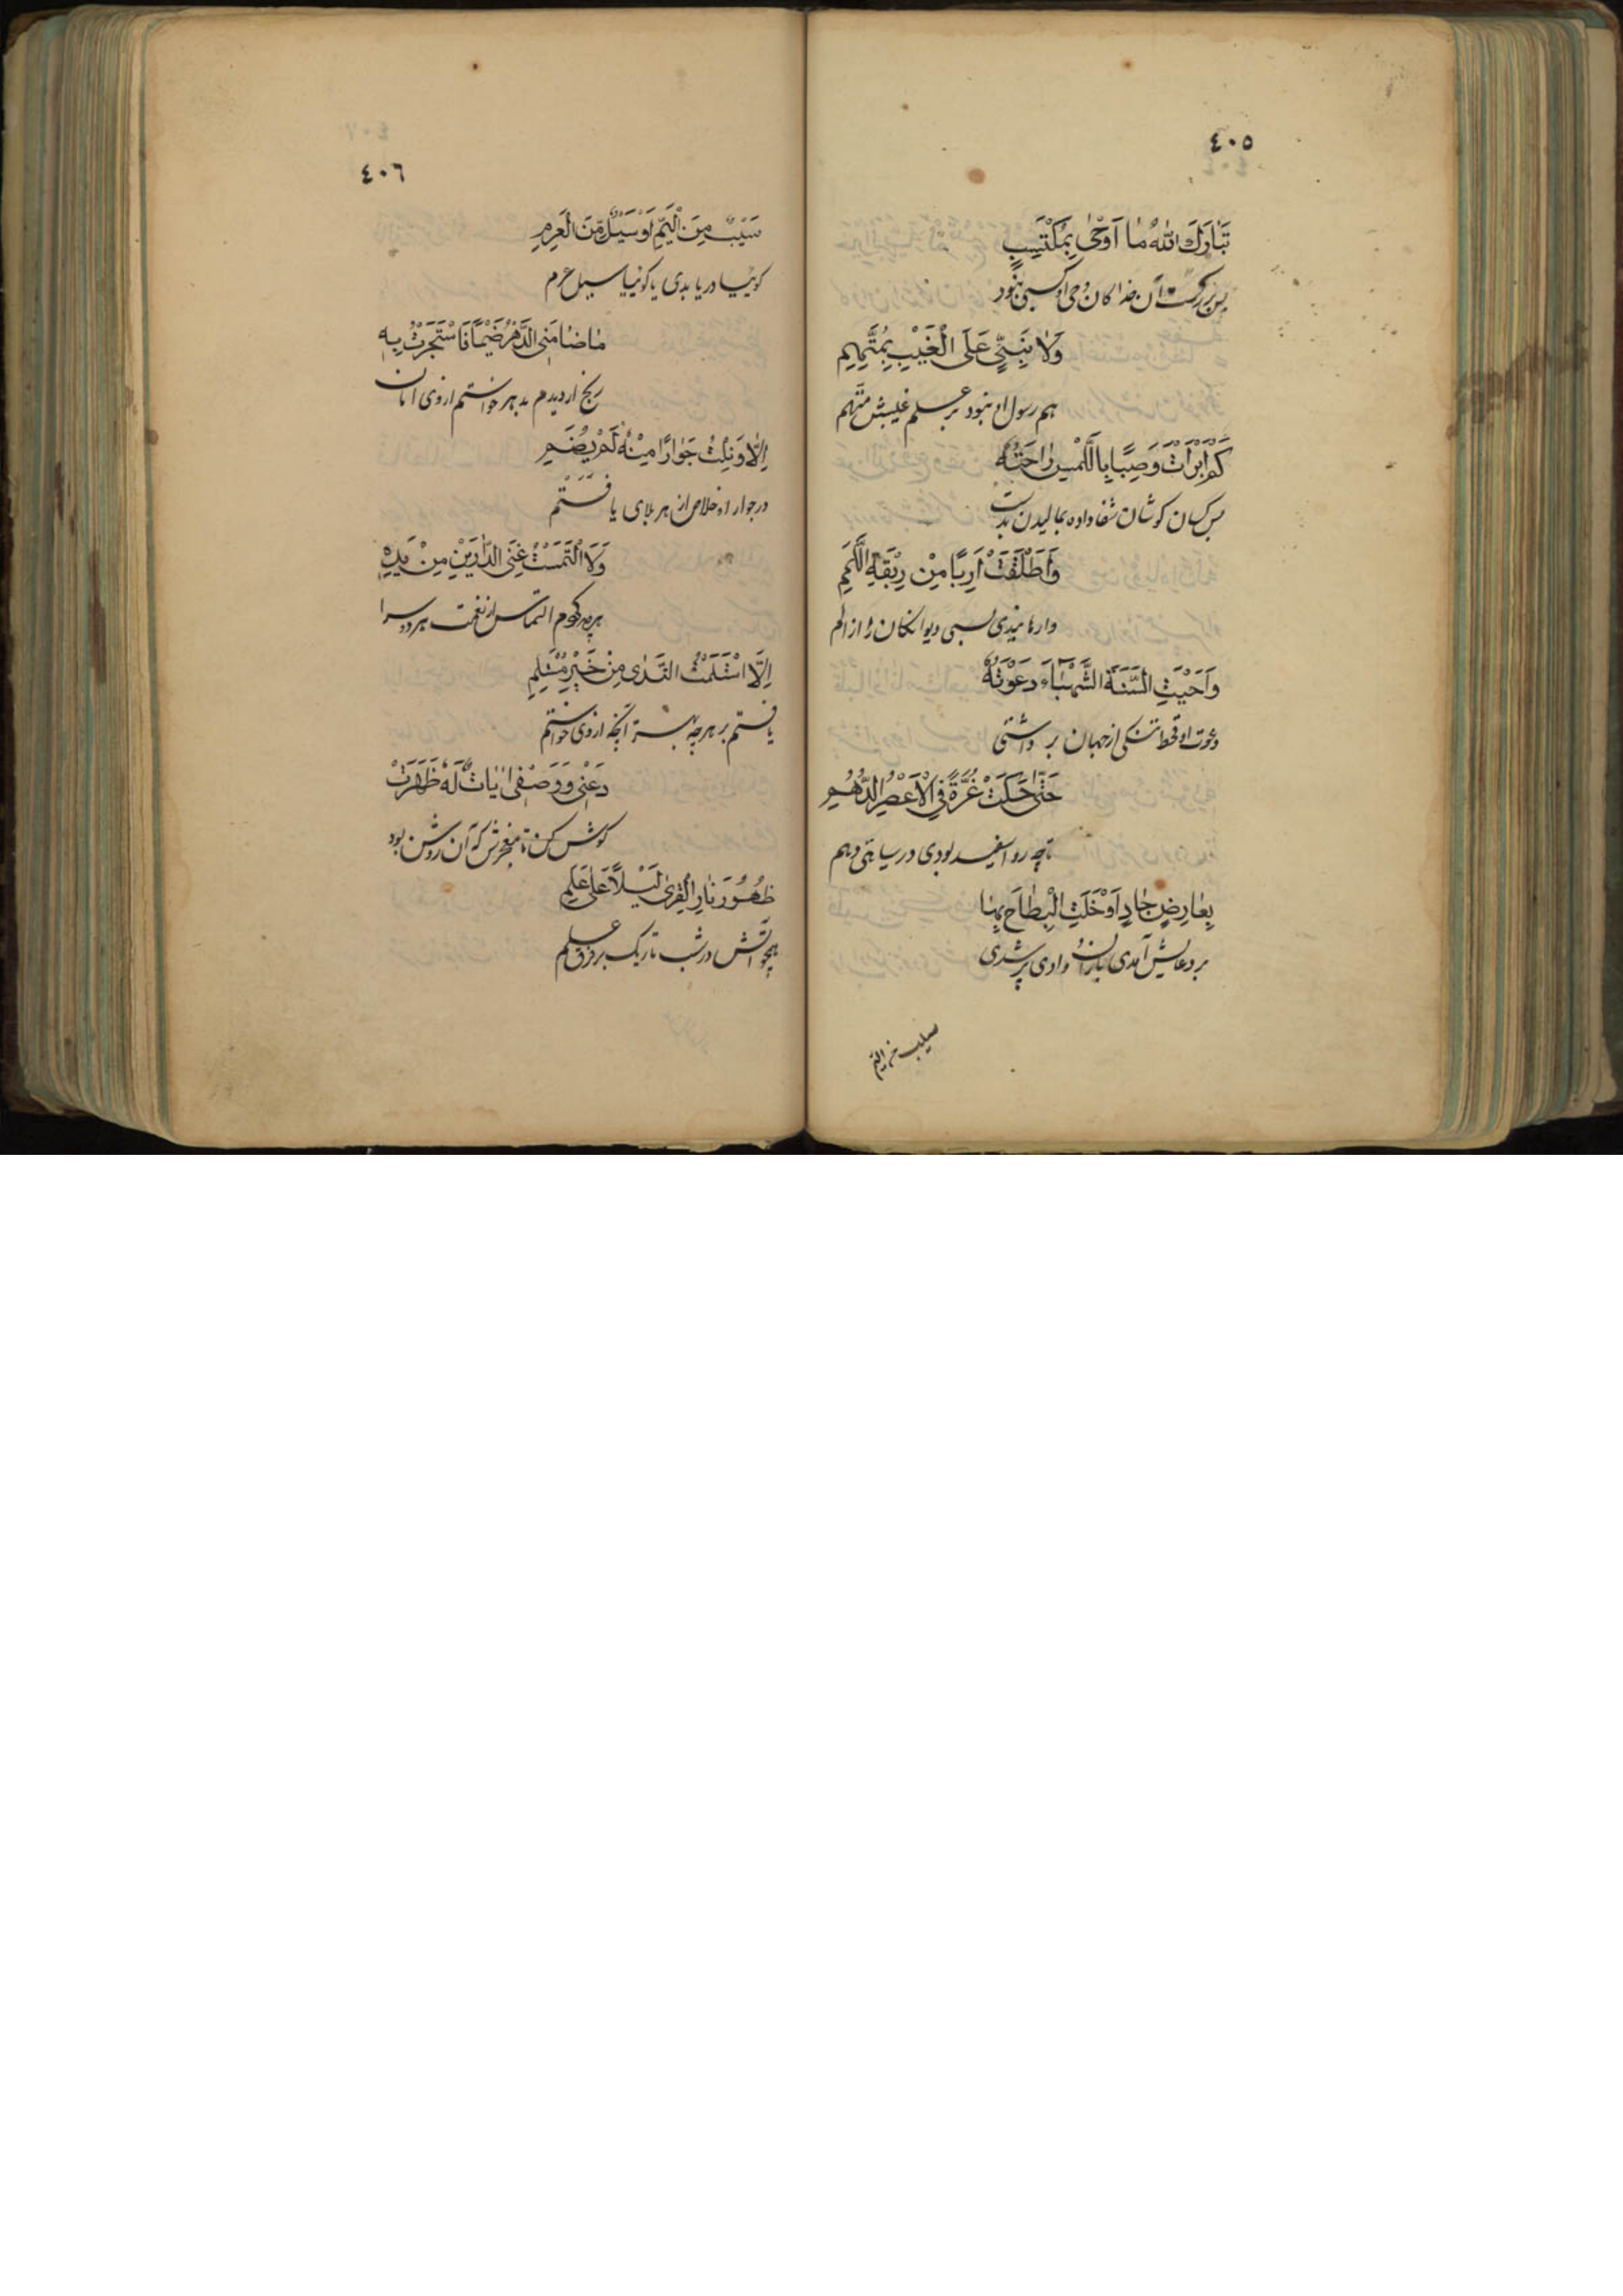 ٤٠٥
تَبَارَكَ اللهُ مَا اَوْحٰى بِمُكْتَسِبٍ
بس بزرگست آن خدا کان وحی او کسبی نبود
وَلَا نَبِيٌّ عَلَى الْغَيْبِ بِمُتَّهَمِ
هم رسول او نبود بر علم غیبش متهم
كَمْ اَبْرَاَتْ وَصِبًا بِاللَّمْسِ رَاحَتُهُ
بس کسان کوشان شفا داده بمالیدن بدست
وَاَطْلَقَتْ اَرِبًا مِنْ رِبْقَةِ اللَّمَمِ
وارهانیدی بسی دیوانکان را از الم
وَاَحْيَتِ السَّنَةَ الشَّهْبَاءَ دَعْوَتُهُ
دعوت او قحط تنکی از جهان بر داشتی
حَتّٰى حَكَتْ غُرَّةً فِي الْاَعْصُرِ الدُّهُمِ
رو اسفید بودی در سیاهی دهم
بِعَارِضٍ جَادَ اَوْ خَلْتَ الْبِطَاحَ بِهَا
بر دعایش آمدی باران وادی پر شدی
سیب من الیم
٤٠٦
سَيْبٌ مِنَ الْيَمِّ اَوْ سَيْلٌ مِنَ الْعَرِمِ
کوئیا دریا بدی یا کوئیا سیل عرم
مَا ضَامَنِي الدَّهْرُ ضَيْمًا فَاسْتَجَرْتُ بِهِ
رنج ار دیدم بدهر خواستم از وی امان
اِلَّا وَنِلْتُ جِوَارًا مِنْهُ لَمْ يُضَمِ
در جوار او خلاص از هر بلای یافتم
وَلَا الْتَمَسْتُ غِنَى الدَّارَيْنِ مِنْ يَدِهِ
هرچه کردم التماس از نعمت هر دو سرا
اِلَّا اسْتَلَمْتُ النَّدٰى مِنْ خَيْرِ مُسْتَلَمِ
یافتم بر هرچه بهتر آنچه از وی خواستم
دَعْنِي وَوَصْفِي اٰيَاتٍ لَهُ ظَهَرَتْ
کوش کن تا معجزش که آن روشن بود
ظُهُورَ نَارِ الْقِرٰى لَيْلًا عَلٰى عَلَمِ
همچو آتش در شب تاریک بر فرق علم